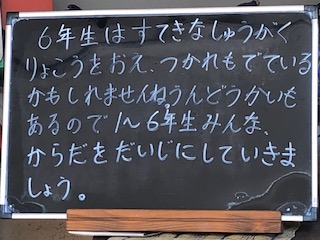 6年生はすてきなしゅうがく
りょこうをおえ、つかれもでている
かもしれませんね。うんどうかいも
あるので1〜6年生みんな、
からだをだいじにしていきま
しょう。